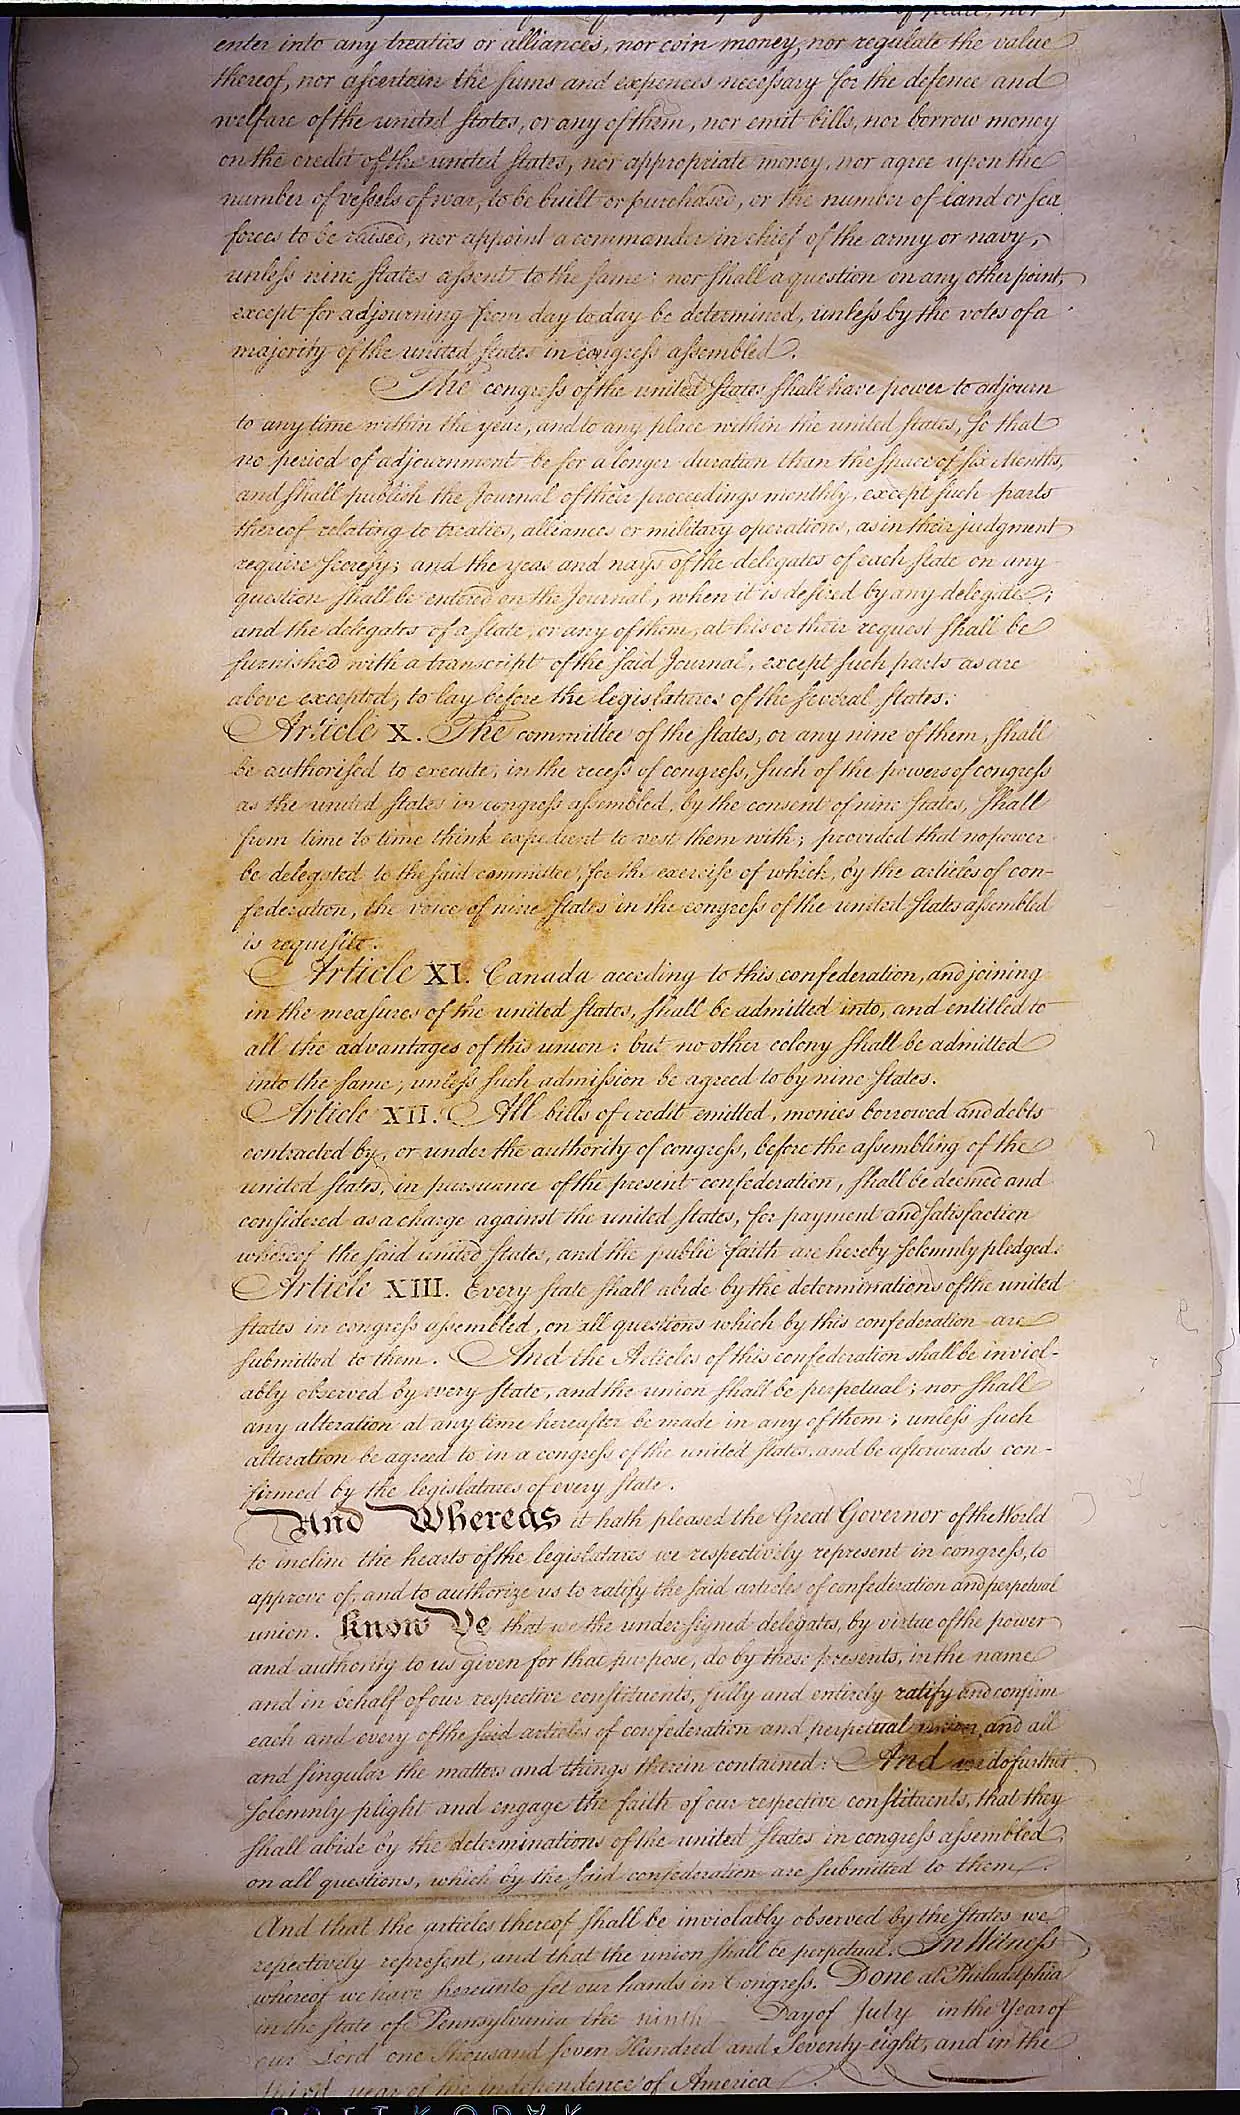 enter into any treaties or alliances, nor coin money, nor regulate the value
thereof, nor ascertain the sums and expences necessary for the defence and
welfare of the united states, or any of them, nor emit bills, nor borrow money
on the credit of the united states, nor appropriate money, nor agree upon the
number of vessels of war, to be built or purchased, or the number of land or sea
forces to be raised, nor appoint a commander in chief of the army or navy,
unless nine states assent to the same: nor shall a question on any other point,
except for adjourning from day to day be determined, unless by the votes of a
majority of the united states in congress assembled.
The congress of the united states shall have power to adjourn
to any time within the year, and to any place within the united states, so that
no period of adjournment be for a longer duration than the space of six Months,
and shall publish the Journal of their proceedings monthly, except such parts
thereof relating to treaties, alliances or military operations, as in their judgment
require secresy; and the yeas and nays of the delegates of each state on any
question shall be entered on the Journal, when it is desired by any delegate;
and the delegates of a state, or any of them, at his or their request shall be
furnished with a transcript of the said Journal, except such parts as are
above excepted, to lay before the legislatures of the several states.
Article X. The committee of the states, or any nine of them, shall
be authorised to execute, in the recess of congress, such of the powers of congress
as the united states in congress assembled, by the consent of nine states, shall
from time to time think expedient to vest them with; provided that no power
be delegated to the said committee, for the exercise of which, by the articles of con-
federation, the voice of nine states in the congress of the united states assembled
is requisite.
Article XI. Canada acceding to this confederation, and joining
in the measures of the united states, shall be admitted into, and entitled to
all the advantages of this union: but no other colony shall be admitted
into the same, unless such admission be agreed to by nine states.
Article XII. All bills of credit emitted, monies borrowed and debts
contracted by, or under the authority of congress, before the assembling of the
united states, in pursuance of the present confederation, shall be deemed and
considered as a charge against the united states, for payment and satisfaction
whereof the said united states, and the public faith are hereby solemnly pledged.
Article XIII. Every state shall abide by the determinations of the united
states in congress assembled, on all questions which by this confederation are
submitted to them. And the Articles of this confederation shall be inviol-
ably observed by every state, and the union shall be perpetual; nor shall
any alteration at any time hereafter be made in any of them; unless such
alteration be agreed to in a congress of the united states, and be afterwards con-
firmed by the legislatures of every state.
And Whereas it hath pleased the Great Governor of the World
to incline the hearts of the legislatures we respectively represent in congress, to
approve of, and to authorize us to ratify the said articles of confederation and perpetual
union. Know Ye that we the undersigned delegates, by virtue of the power
and authority to us given for that purpose, do by these presents, in the name
and in behalf of our respective constituents, fully and entirely ratify and confirm
each and every of the said articles of confederation and perpetual union, and all
and singular the matters and things therein contained: And we do further
solemnly plight and engage the faith of our respective constituents, that they
shall abide by the determinations of the united states in congress assembled,
on all questions, which by the said confederation are submitted to them.
And that the articles thereof shall be inviolably observed by the states we
respectively represent, and that the union shall be perpetual. In Witness
whereof we have hereunto set our hands in Congress. Done at Philadelphia
in the state of Pennsylvania the ninth Day of July in the Year of
our Lord one Thousand seven Hundred and Seventy-eight, and in the
third year of the independence of America